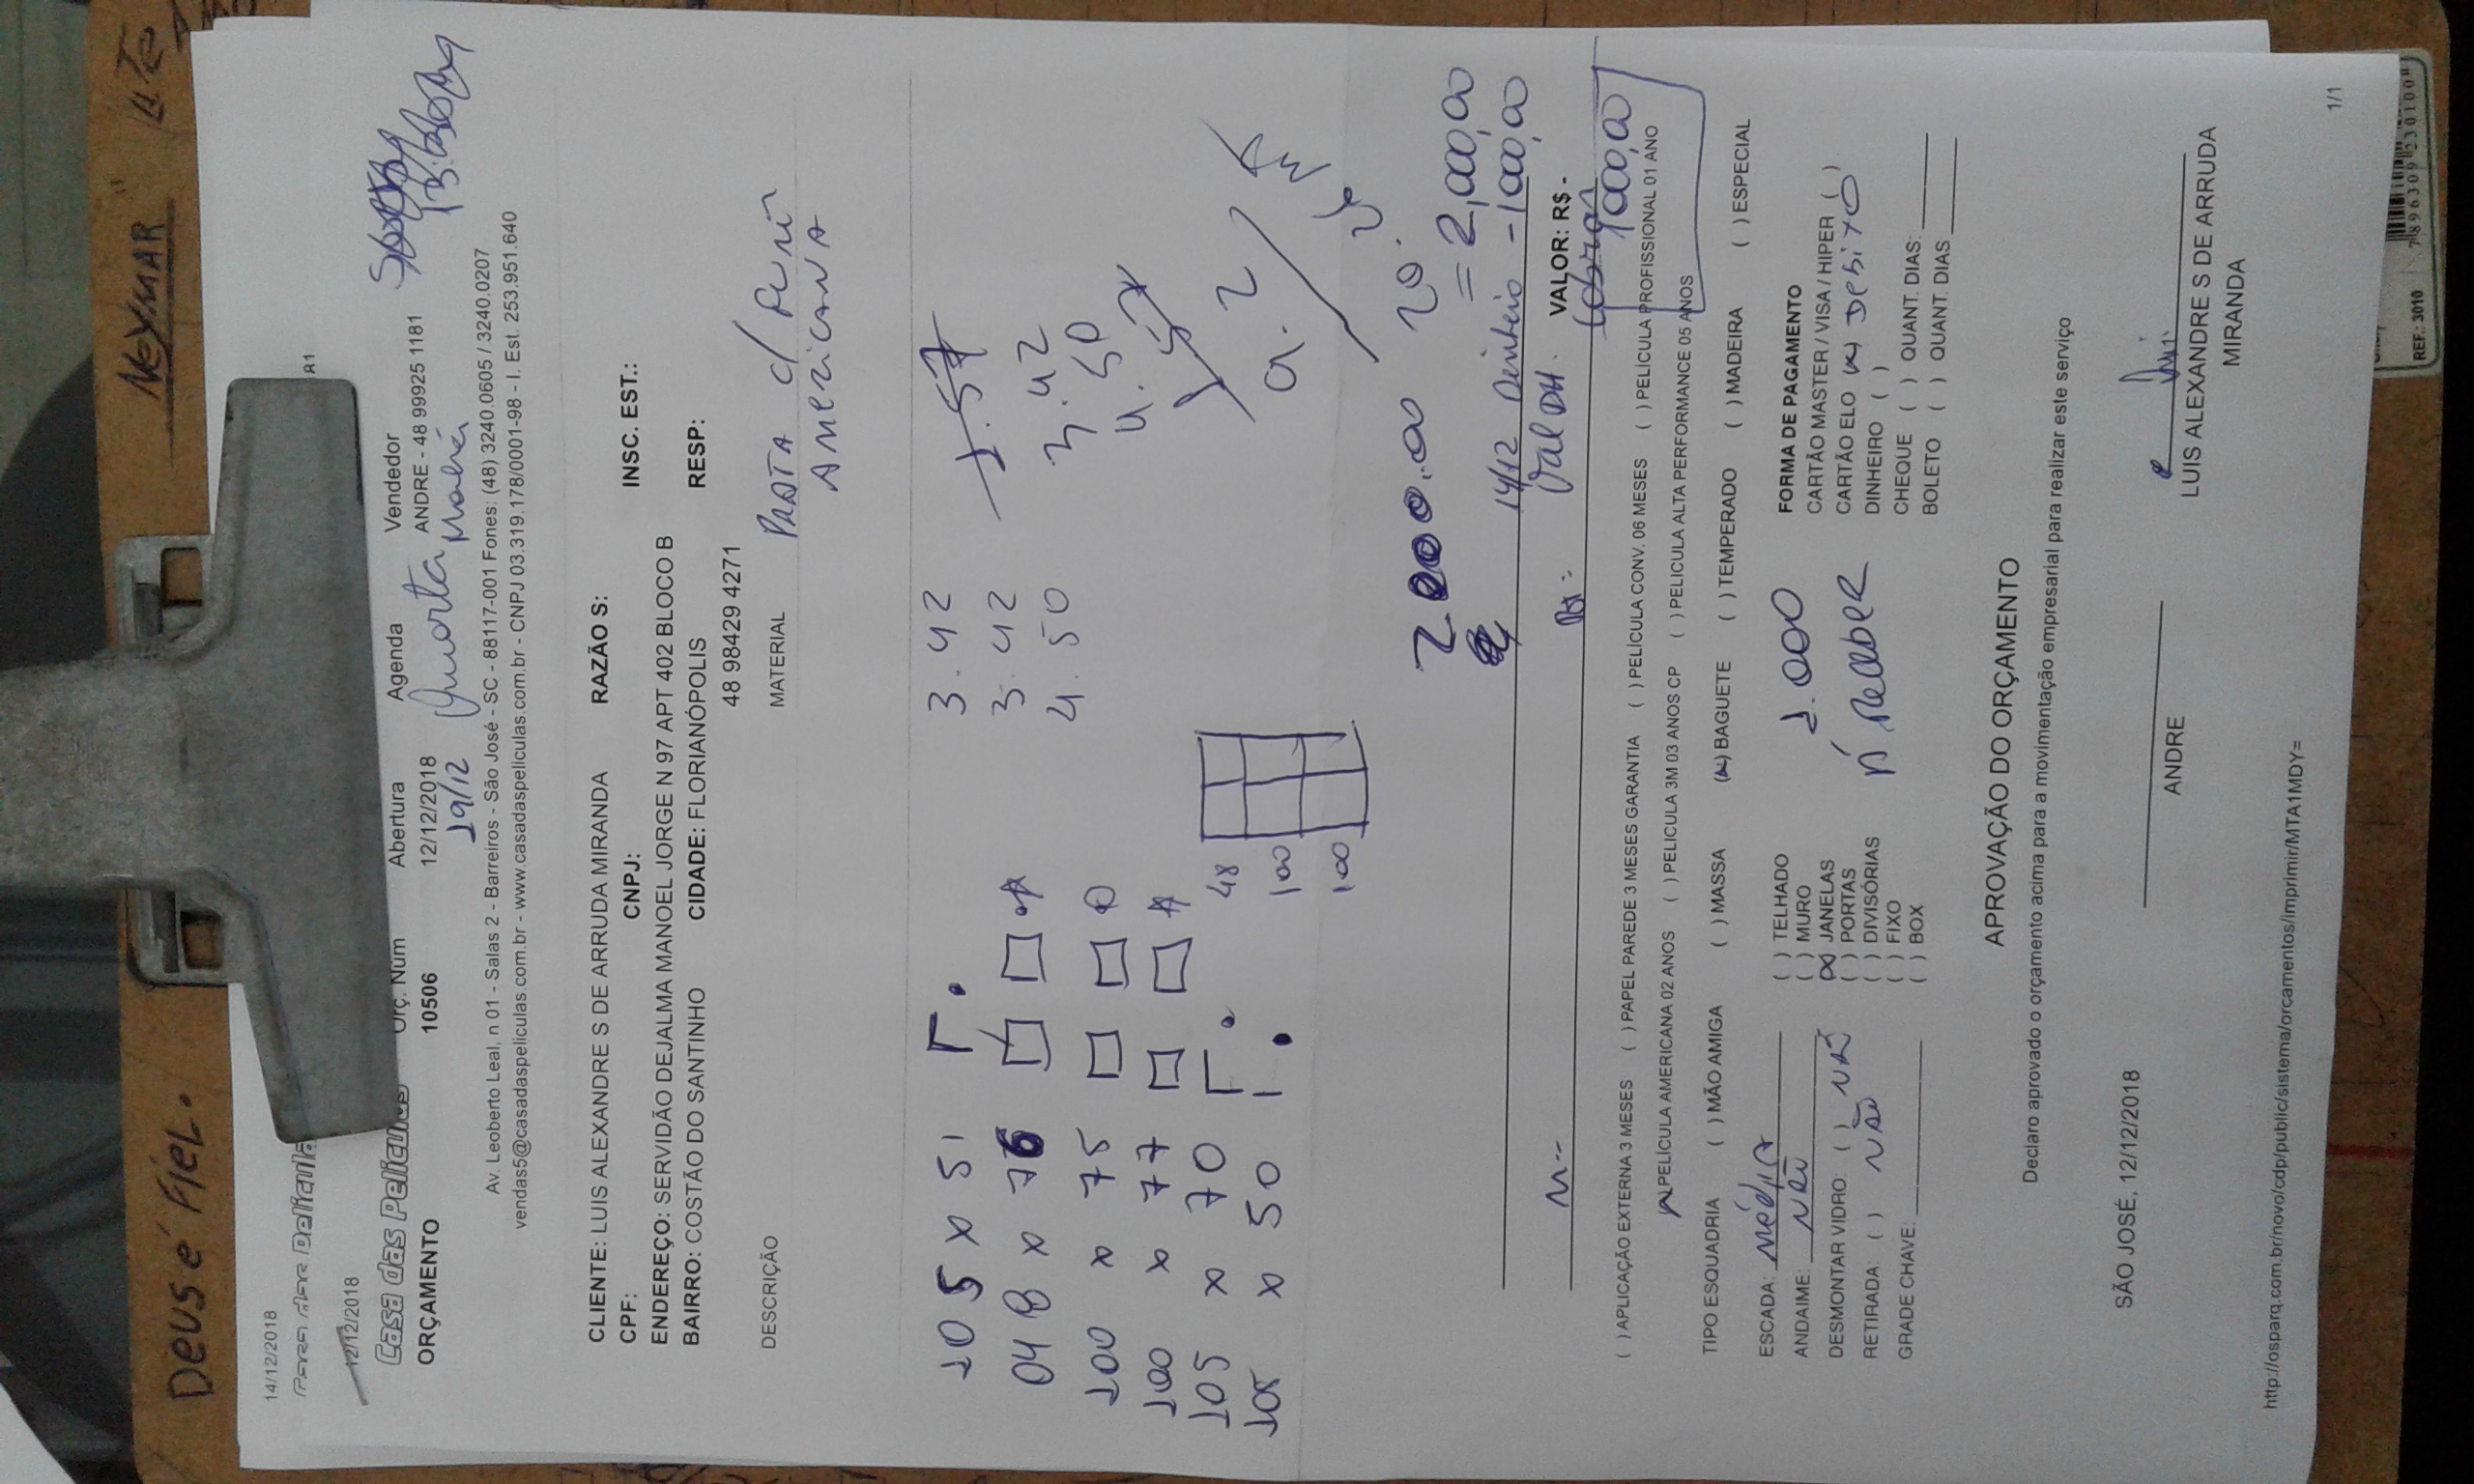 DEUS É FIEL.
NEYMAR
14/12/2018
12/12/2018
Casa das Películas
Orç. Núm
Abertura
Agenda
Vendedor
ORÇAMENTO
10506
12/12/2018
ANDRE - 48 99925 1181
19/12
Quarta
Av. Leoberto Leal, n 01 - Salas 2 - Barreiros - São José - SC - 88117-001 Fones: (48) 3240.0605 / 3240.0207
vendas5@casadaspeliculas.com.br - www.casadaspeliculas.com.br - CNPJ 03.319.178/0001-98 - I. Est. 253.951.640
CLIENTE: LUIS ALEXANDRE S DE ARRUDA MIRANDA
RAZÃO S:
CPF:
CNPJ:
INSC. EST.:
ENDEREÇO: SERVIDÃO DEJALMA MANOEL JORGE N 97 APT 402 BLOCO B
BAIRRO: COSTÃO DO SANTINHO
CIDADE: FLORIANÓPOLIS
RESP:
48 98429 4271
DESCRIÇÃO
MATERIAL
PRATA c/
AMERICANA
105 x 51
3.42
1.57
048 x 76
3.42
3.42
100 x 75
4.50
3.50
100 x 77
105 x 70
48
9.2
105 x 50
100
100
2000.00
= 2,000,00
14/12 Dinheiro - 1000,00
VALOR: R$ -
1000,00
( ) APLICAÇÃO EXTERNA 3 MESES ( ) PAPEL PAREDE 3 MESES GARANTIA ( ) PELÍCULA CONV. 06 MESES ( ) PELÍCULA PROFISSIONAL 01 ANO
PELÍCULA AMERICANA 02 ANOS ( ) PELICULA 3M 03 ANOS CP ( ) PELICULA ALTA PERFORMANCE 05 ANOS
TIPO ESQUADRIA ( ) MÃO AMIGA ( ) MASSA (x) BAGUETE ( ) TEMPERADO ( ) MADEIRA ( ) ESPECIAL
ESCADA: MÉDIA
ANDAIME: NÃO
DESMONTAR VIDRO: ( )
RETIRADA: ( ) NÃO
GRADE CHAVE:
( ) TELHADO
( ) MURO
(x) JANELAS
( ) PORTAS
( ) DIVISÓRIAS
( ) FIXO
( ) BOX
1.000
RECEBER
FORMA DE PAGAMENTO
CARTÃO MASTER / VISA / HIPER ( )
CARTÃO ELO (x) DEBITO
DINHEIRO ( )
CHEQUE ( ) QUANT. DIAS:
BOLETO ( ) QUANT. DIAS
APROVAÇÃO DO ORÇAMENTO
Declaro aprovado o orçamento acima para a movimentação empresarial para realizar este serviço
SÃO JOSÉ, 12/12/2018
ANDRE
LUIS ALEXANDRE S DE ARRUDA
MIRANDA
http://osparq.com.br/novo/cdp/public/sistema/orcamentos/imprimir/MTA1MDY=
1/1
REF.: 3010